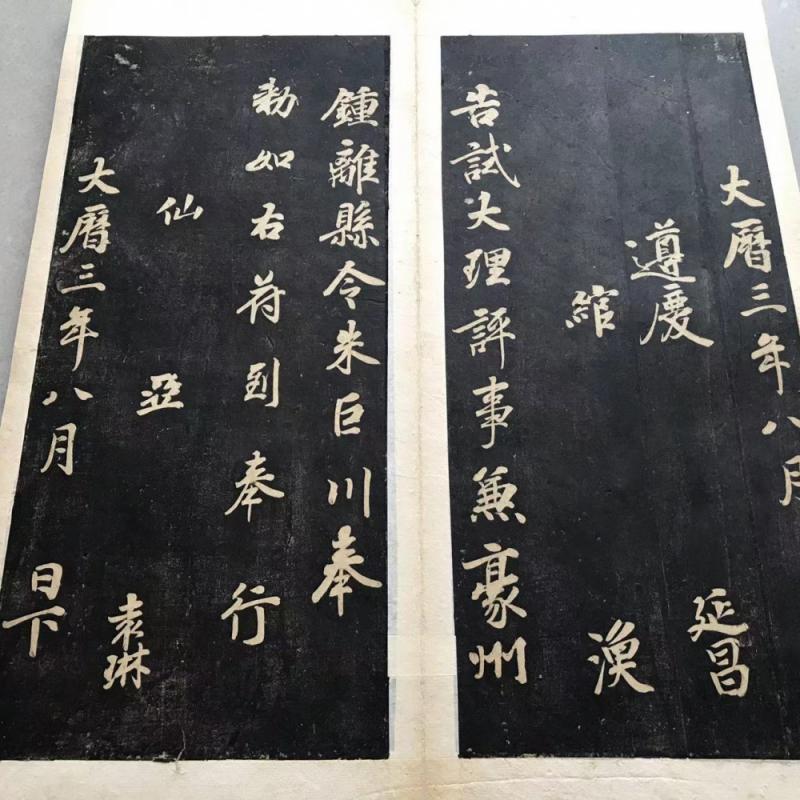 大曆三年八月
延昌
遵慶
綰
渙
告試大理評事兼豪州
鍾離縣令朱巨川奉
勅如右苻到奉行
仙
亞
袁琳
大曆三年八月
日下